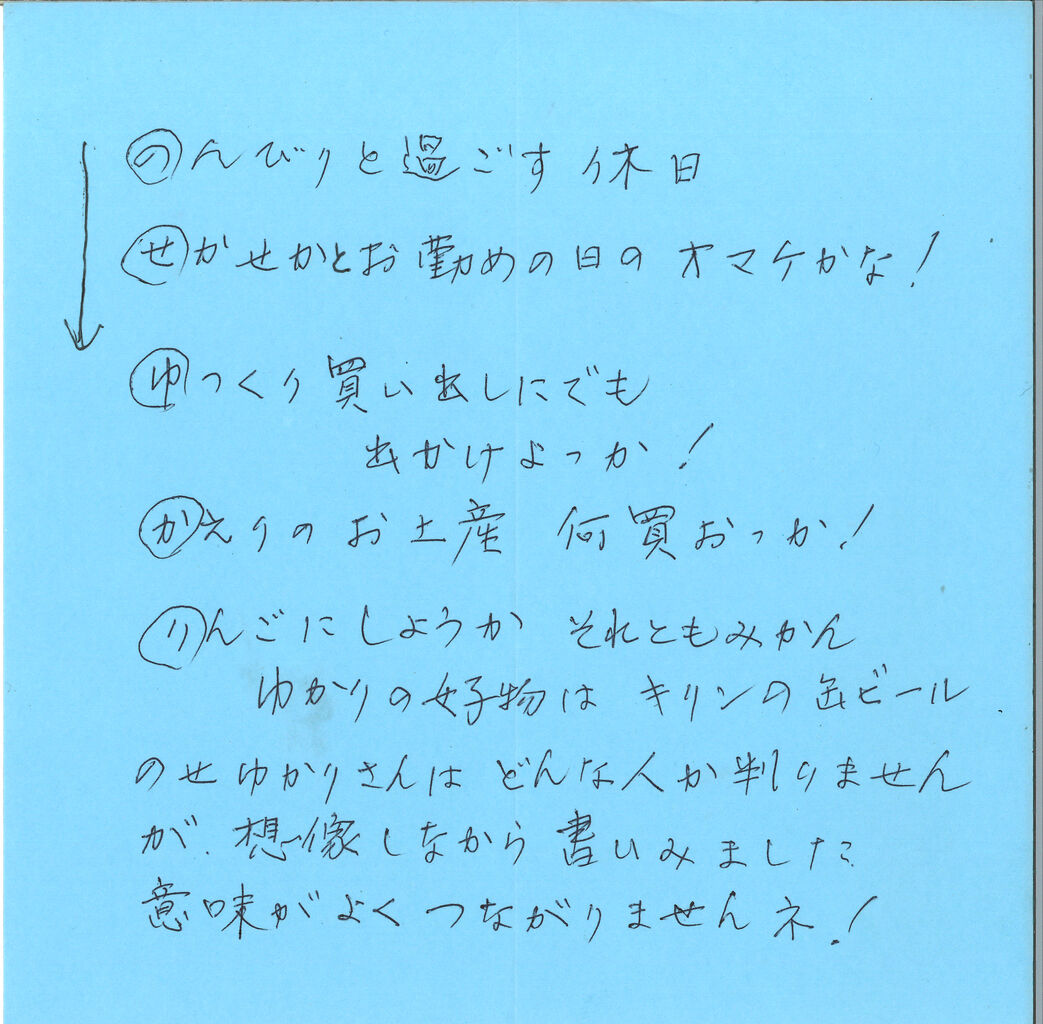 のんびりと過ごす休日
せかせかとお勤めの日のオマケかな!
ゆっくり買い出しにでも
出かけよっか!
かえりのお土産 何買おっか!
りんごにしようか それともみかん
ゆかりの好物は キリンの缶ビール
のせゆかりさんは どんな人か判りません
が、想像しながら 書いみました
意味がよく つながりませんネ!